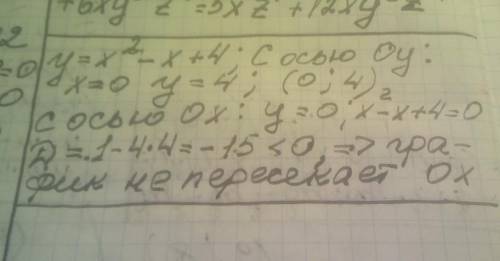 +6xy z =3xz +12xy z
2
=0
0
y=x²-x+4; С осью Oy:
x=0 y=4; (0; 4)
с осью Ox: y=0; x²-x+4=0
D=1-4·4=-15<0, => гра-
фик не пересекает Ox